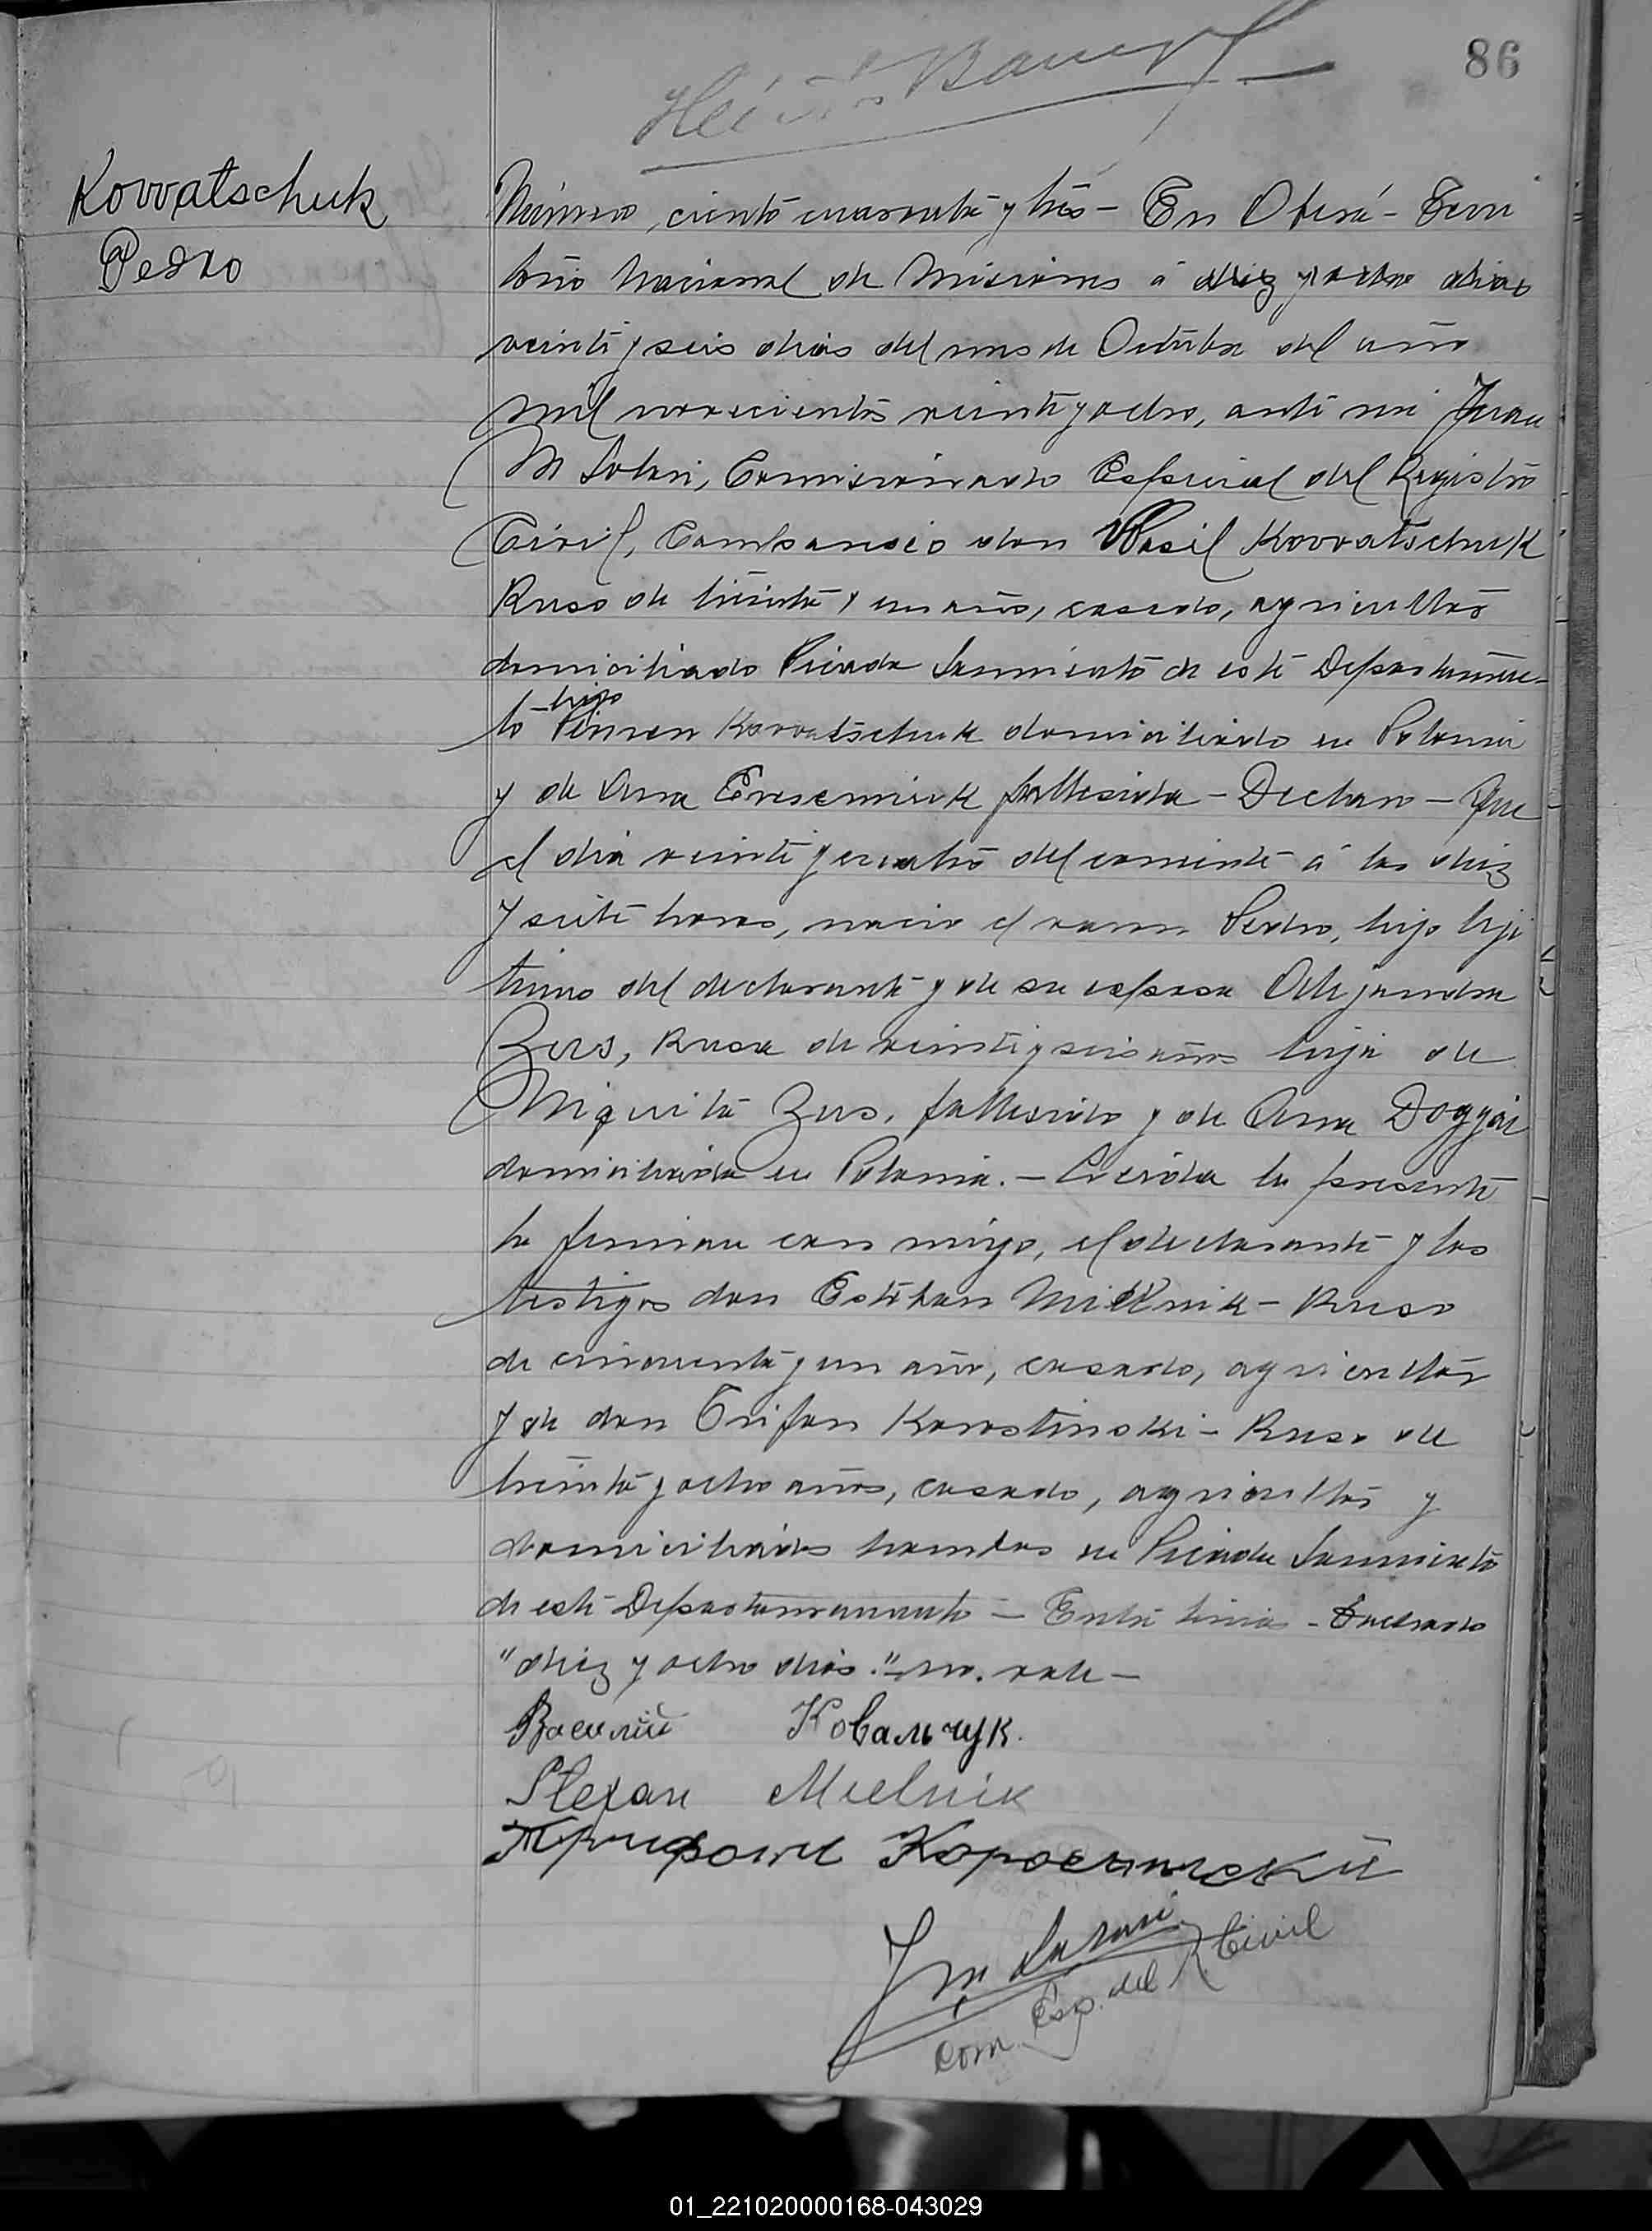 86
Kowatschuk
Pedro
Número, ciento cuarenta y trés - En Oberá - Terri
torio Nacional de Misiones á diez y ocho dias
veinte y seis dias del mes de Octubre del año
mil novecientos veinte y ocho, ante mi Juan
M Solari, Comisionado Especial del Registro
Civil, Comparecio don Wasil Kowatschuk
Ruso de treinta y un año, casado, agricultor
domiciliado Picada Sarmiento de este Departamen-
hijo
to Pimen Kowatschuk domiciliado en Polonia
y de Ana fallesida - Declaro - Que
el dia veinte y cuatro del corriente á las diez
y siete horas, nacio el varon Pedro, hijo liji
timo del declarante y de su esposa Alejandra
Zus, Rusa de veinte y seis años hija de
Miquita Zus, fallesido y de Ana
domiciliada en Polonia. - Leida la presente
la firman con migo, el declarante y los
testigos don Estéban Mielnik - Ruso
de cincuenta y un año, casado, agricultor
y de don Trifon Korostinski - Ruso de
treinta y ocho años, casado, agricultor y
domiciliados hambos en Picada Sarmiento
de este Departamramento - Entre linia -
"diez y ocho dias." - no. vale -
Василий Ковальчук.
Stefan Mielnik
Трифон Коростинский
J M Solari
Com. Esp. del R. Civil
01_221020000168-043029